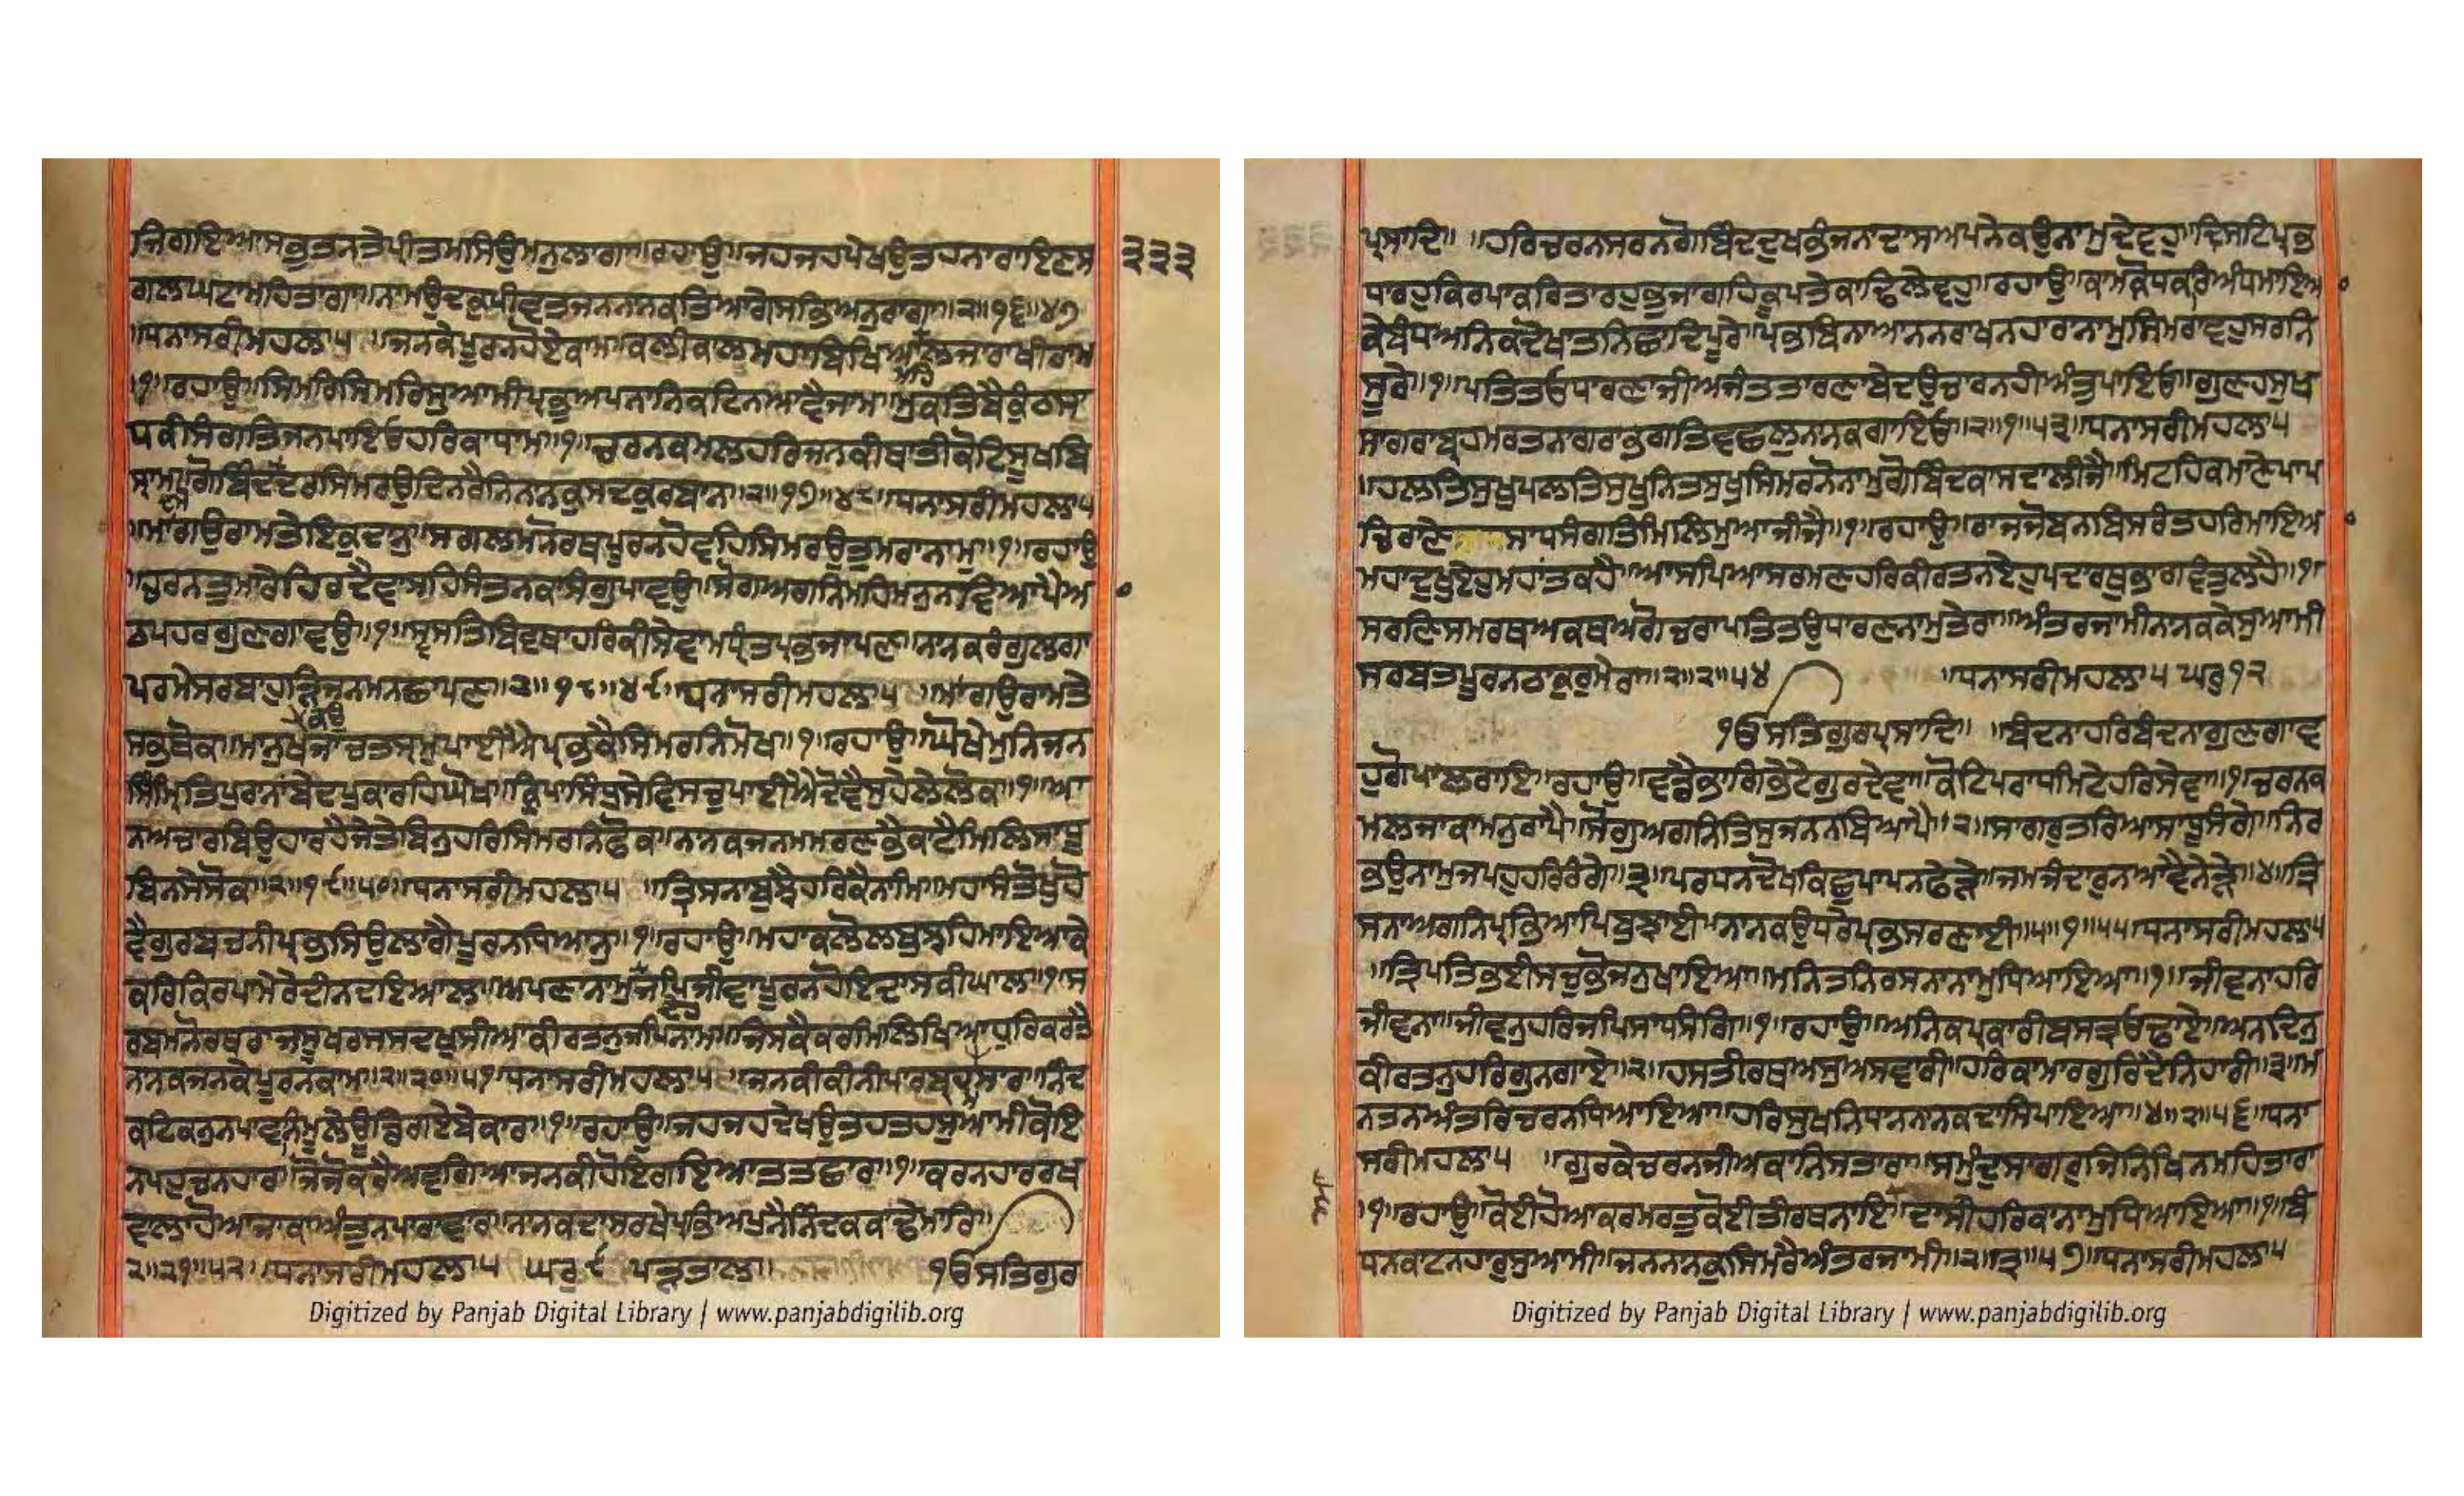 ਜਿਗਾਇਆਸਕੁਤਨਤੇਪ੍ਰੀਤਮਸਿਉਮਨੁਲਾਗਾ॥ਰਹਾਉ॥ਜਹਜਹਪੇਖਉਤਹਨਾਰਾਇਣਸ
੨੩੩
ਗਲਘਟਾਮਹਿਤਾਗਾ॥ਨਾਮਉਦਕੁਪੀਵਤਜਨਨਾਨਕਤਿਆਗੇਸਭਿਅਨੁਰਾਗਾ॥੨॥੧੬॥੪੭
॥ਧਨਾਸਰੀਮਹਲਾ੫ ॥ਜਨਕੇਪੂਰਨਹੋਏਕਾਮ॥ਕਲੀਕਾਲਮਹਾਬਿਖਿਆਲਜਰਾਖੀਰਾਮ
ਮਹਿ
॥੧॥ਰਹਾਉ॥ਸਿਮਰਿਸਿਮਰਿਸੁਆਮੀਪ੍ਰਭੁਅਪਨਾਨਿਕਟਿਨਆਵੈਜਾਮ॥ਮੁਕਤਿਬੈਕੁੰਠਸਾ
ਧਕੀਸੰਗਤਿਜਨਪਾਇਓਹਰਿਕਾਧਾਮ॥੧॥ਚਰਨਕਮਲਹਰਿਜਨਕੀਥਾਤੀਕੋਟਿਸੂਖਬਿ
ਸ੍ਰਾਮ॥ਗੋਬਿੰਦੁਦਮੋਦਰਸਿਮਰਉਦਿਨਰੈਨਿਨਾਨਕੁਸਦਕੁਰਬਾਨ॥੨॥੧੭॥੪੮॥ਧਨਾਸਰੀਮਹਲਾ੫
॥ਮਾਂਗਉਰਾਮਤੇਇਕੁਦਾਨੁ॥ਸਗਲਮਨੋਰਥਪੂਰਨਹੋਵਹਿਸਿਮਰਉਤੁਮਰਾਨਾਮੁ॥੧॥ਰਹਾਉ
॥ਚਰਨਤੁਮਾਰੇਹਿਰਦੈਵਾਸਹਿਸੰਤਨਕਾਸੰਗੁਪਾਵਉ॥ਸੋਗਅਗਨਿਮਹਿਮਨੁਨਵਿਆਪੈਆ
ਠਪਹਰਗੁਣਗਾਵਉ॥੧॥ਸ੍ਵਸਤਿਬਿਵਸਥਾਹਰਿਕੀਸੇਵਾਮਧੰ੍ਯਤਪ੍ਰਭਜਾਪਣ॥ਨਾਨਕਰੰਗੁਲਗਾ
ਪਰਮੇਸਰਬਾਹੁੜਿਜਨਮਨਛਾਪਣ॥੨॥੧੮॥੪੯॥ਧਨਾਸਰੀਮਹਲਾ੫ ॥ਮਾਂਗਉਰਾਮਤੇ
ਸਭਿਥੋਕ॥ਮਾਨੁਖਜਾਚਤਸ੍ਰਮੁਪਾਈਐਪ੍ਰਭਕੈਸਿਮਰਨਿਮੋਖ॥੧॥ਰਹਾਉ॥ਘੋਖੇਮੁਨਿਜਨ
ਕਉ
ਸਿੰਮ੍ਰਿਤਿਪੁਰਾਨਾਂਬੇਦਪੁਕਾਰਹਿਘੋਖ॥ਕ੍ਰਿਪਾਸਿੰਧੁਸੇਵਿਸਚੁਪਾਈਐਦੋਵੈਸੁਹੇਲੇਲੋਕ॥੧॥ਆ
ਨਅਚਾਰਬਿਉਹਾਰਹੈਜੇਤੇਬਿਨੁਹਰਿਸਿਮਰਨਿਫੋਕ॥ਨਾਨਕਜਨਮਮਰਣਭੈਕਾਟੈਮਿਲਿਸਾਧੂ
ਬਿਨਸੇਸੋਕ॥੨॥੧੯॥੫੦॥ਧਨਾਸਰੀਮਹਲਾ੫ ॥ਤ੍ਰਿਸਨਾਬੁਝੈਹਰਿਕੈਨਾਮਿ॥ਮਹਾਸੰਤੋਖੁਹੋ
ਵੈਗੁਰਬਚਨੀਪ੍ਰਭਸਿਉਲਾਗੈਪੂਰਨਧਿਆਨੁ॥੧॥ਰਹਾਉ॥ਮਹਾਕਲੋਲਬੁਝਹਿਮਾਇਆਕੇ
ਕਰਿਕਿਰਪਾਮੇਰੇਦੀਨਦਇਆਲ॥ਅਪਣਾਨਾਮੁਜਪਿਜੀਵਾਪੂਰਨਹੋਇਦਾਸਕੀਘਾਲ॥੧॥ਸ
ਰਬਮਨੋਰਥਰਾਜਸੂਖਰਸਸਦਖੁਸੀਆਕੀਰਤਨੁਜਪਿਨਾਮ॥ਜਿਸਕੈਕਰਮਿਲਿਖਿਆਧੁਰਿਕਰਤੈ
ਨਾਨਕਜਨਕੇਪੂਰਨਕਾਮ॥੨॥੨੦॥੫੧॥ਧਨਾਸਰੀਮਹਲਾ੫ ॥ਜਨਕੀਕੀਨੀਪਾਰਬ੍ਰਹਮਿਸਾਰ॥ਨਿੰਦ
ਕਟਿਕਨੁਨਪਾਵਨਿਮੂਲੇਊਡਿਗਏਬੇਕਾਰ॥੧॥ਰਹਾਉ॥ਜਹਜਹਦੇਖਉਤਹਤਹਸੁਆਮੀਕੋਇ
ਨਪਹੁਚਨਹਾਰ॥ਜੋਜੋਕਰੈਅਵਗਿਆਜਨਕੀਹੋਇਗਇਆਤਤਛਾਰ॥੧॥ਕਰਨਹਾਰਰਖ
ਵਾਲਾਹੋਆਜਾਕਾਅੰਤੁਨਪਾਰਾਵਾਰ॥ਨਾਨਕਦਾਸਰਖੇਪ੍ਰਭਿਅਪੁਨੈਨਿੰਦਕਕਾਢੇਮਾਰਿ॥
੨॥੨੧॥੫੨॥ਧਨਾਸਰੀਮਹਲਾ੫ ਘਰੁ੯ ਪੜਤਾਲ॥ ੧ੴਸਤਿਗੁਰ
Digitized by Panjab Digital Library | www.panjabdigilib.org
ਪ੍ਰਸਾਦਿ॥ ॥ਹਰਿਚਰਨਸਰਨਗੋਬਿੰਦਦੁਖਭੰਜਨਾਦਾਸਅਪਨੇਕਉਨਾਮੁਦੇਵਹੁ॥ਦ੍ਰਿਸਟਿਪ੍ਰਭ
ਧਾਰਹੁਕਿਰਪਾਕਰਿਤਾਰਹੁਭੁਜਾਗਹਿਕੂਪਤੇਕਾਢਿਲੇਵਹੁ॥ਰਹਾਉ॥ਕਾਮਕ੍ਰੋਧਕਰਿਅੰਧਮਾਇਆ
ਕੇਬੰਧਅਨਿਕਦੋਖਾਤਨਿਛਾਦਿਪੂਰੇ॥ਪ੍ਰਭਬਿਨਾਆਨਨਰਾਖਨਹਾਰਾਨਾਮੁਸਿਮਰਾਵਹੁਸਰਨਿ
ਸੂਰੇ॥੧॥ਪਤਿਤਉਧਾਰਣਾਜੀਅਜੰਤਤਾਰਣਾਬੇਦਉਚਾਰਨਹੀਅੰਤੁਪਾਇਓ॥ਗੁਣਹਸੁਖ
ਸਾਗਰਾਬ੍ਰਹਮਰਤਨਾਗਰਾਭਗਤਿਵਛਲੁਨਾਨਕਗਾਇਓ॥੨॥੧॥੫੩॥ਧਨਾਸਰੀਮਹਲਾ੫
॥ਹਲਤਿਸੁਖੁਪਲਤਿਸੁਖੁਨਿਤਸੁਖੁਸਿਮਰਨੋਨਾਮੁਗੋਬਿੰਦਕਾਸਦਾਲੀਜੈ॥ਮਿਟਹਿਕਮਾਣੇਪਾਪ
ਚਿਰਾਣੇਸਾਧਸੰਗਤਿਮਿਲਿਮੁਆਜੀਜੈ॥੧॥ਰਹਾਉ॥ਰਾਜਜੋਬਨਾਬਿਸਰੰਤਹਰਿਮਾਇਆ
ਮਹਾਦੁਖੁਏਹੁਮਹਾਂਤਕਹੈ॥ਆਸਪਿਆਸਰਮਣਹਰਿਕੀਰਤਨਏਹੁਪਦਾਰਥੁਭਾਗਵੰਤੁਲਹੈ॥੧॥
ਸਰਣਿਸਮਰਥਅਕਥਅਗੋਚਰਾਪਤਿਤਉਧਾਰਣਨਾਮੁਤੇਰਾ॥ਅੰਤਰਜਾਮੀਨਾਨਕਕੇਸੁਆਮੀ
ਸਰਬਤਪੂਰਨਠਾਕੁਰੁਮੇਰਾ॥੨॥੨॥੫੪ ॥ਧਨਾਸਰੀਮਹਲਾ੫ ਘਰੁ੧੨
੧ੴਸਤਿਗੁਰਪ੍ਰਸਾਦਿ॥ ॥ਬੰਦਨਾਹਰਿਬੰਦਨਾਗੁਣਗਾਵ
ਹੁਗੋਪਾਲਰਾਇ॥ਰਹਾਉ॥ਵਡੈਭਾਗਿਭੇਟੇਗੁਰਦੇਵਾ॥ਕੋਟਿਪਰਾਧਮਿਟੇਹਰਿਸੇਵਾ॥੧॥ਚਰਨਕ
ਮਲਜਾਕਾਮਨੁਰਾਪੈ॥ਸੋਗਅਗਨਿਤਿਸੁਜਨਨਬਿਆਪੈ॥੨॥ਸਾਗਰੁਤਰਿਆਸਾਧੂਸੰਗੇ॥ਨਿਰ
ਭਉਨਾਮੁਜਪਹੁਹਰਿਰੰਗੇ॥੩॥ਪਰਧਨਦੋਖਕਿਛੁਪਾਪਨਫੇੜੇ॥ਜਮਜੰਦਾਰੁਨਆਵੈਨੇੜੇ॥੪॥ਤ੍ਰਿ
ਸਨਾਅਗਨਿਪ੍ਰਭਿਆਪਿਬੁਝਾਈ॥ਨਾਨਕਉਧਰੇਪ੍ਰਭਸਰਣਾਈ॥੫॥੧॥੫੫॥ਧਨਾਸਰੀਮਹਲਾ੫
॥ਤ੍ਰਿਪਤਿਭਈਸਚੁਭੋਜਨੁਖਾਇਆ॥ਮਨਿਤਨਿਰਸਨਾਨਾਮੁਧਿਆਇਆ॥੧॥ਜੀਵਨਾਹਰਿ
ਜੀਵਨਾ॥ਜੀਵਨੁਹਰਿਜਪਿਸਾਧਸੰਗਿ॥੧॥ਰਹਾਉ॥ਅਨਿਕਪ੍ਰਕਾਰੀਬਸਤ੍ਰਓਢਾਏ॥ਅਨਦਿਨੁ
ਕੀਰਤਨੁਹਰਿਗੁਨਗਾਏ॥੨॥ਹਸਤੀਰਥਅਸੁਅਸਵਾਰੀ॥ਹਰਿਕਾਮਾਰਗੁਰਿਦੈਨਿਹਾਰੀ॥੩॥ਮ
ਨਤਨਅੰਤਰਿਚਰਨਧਿਆਇਆ॥ਹਰਿਸੁਖਨਿਧਾਨਨਾਨਕਦਾਸਿਪਾਇਆ॥੪॥੨॥੫੬॥ਧਨਾ
ਸਰੀਮਹਲਾ੫ ॥ਗੁਰਕੇਚਰਨਜੀਅਕਾਨਿਸਤਾਰਾ॥ਸਮੁੰਦੁਸਾਗਰੁਜਿਨਿਖਿਨਮਹਿਤਾਰਾ
॥੧॥ਰਹਾਉ॥ਕੋਈਹੋਆਕਰਮਰਤੁਕੋਈਤੀਰਥਨਾਇ॥ਦਾਸੀਹਰਿਕਾਨਾਮੁਧਿਆਇਆ॥੧॥ਬੰ
ਧਨਕਾਟਨਹਾਰੁਸੁਆਮੀ॥ਜਨਨਾਨਕੁਸਿਮਰੈਅੰਤਰਜਾਮੀ॥੨॥੩॥੫੭॥ਧਨਾਸਰੀਮਹਲਾ੫
Digitized by Panjab Digital Library | www.panjabdigilib.org